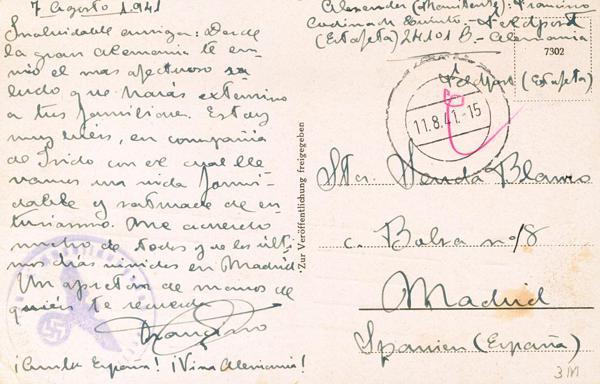 7 Agosto 1.941
Inolvidable amiga: Desde
la gran Alemania te en-
vio el mas afectuoso sa-
ludo que harás extensivo
a tus familiares. Estoy
muy bien, en compañía
de Isido con el cual lle-
vamos una vida formi-
dable y saturada de en-
tusiasmo. Me acuerdo
mucho de todos y de los últi-
mos días vividos en Madrid.
Un apretón de manos de
quien te recuerda
Francisco
¡Arriba España! ¡Viva Alemania!
Zur Veröffentlichung freigegeben
Francisco
Feldpost
(Estafeta) 24101 B.- Alemania
7302
Feldpost (Estafeta)
11.8.41.-15
Srta.
c. Bolsa nº 8
Madrid
Spanien (España)
3M